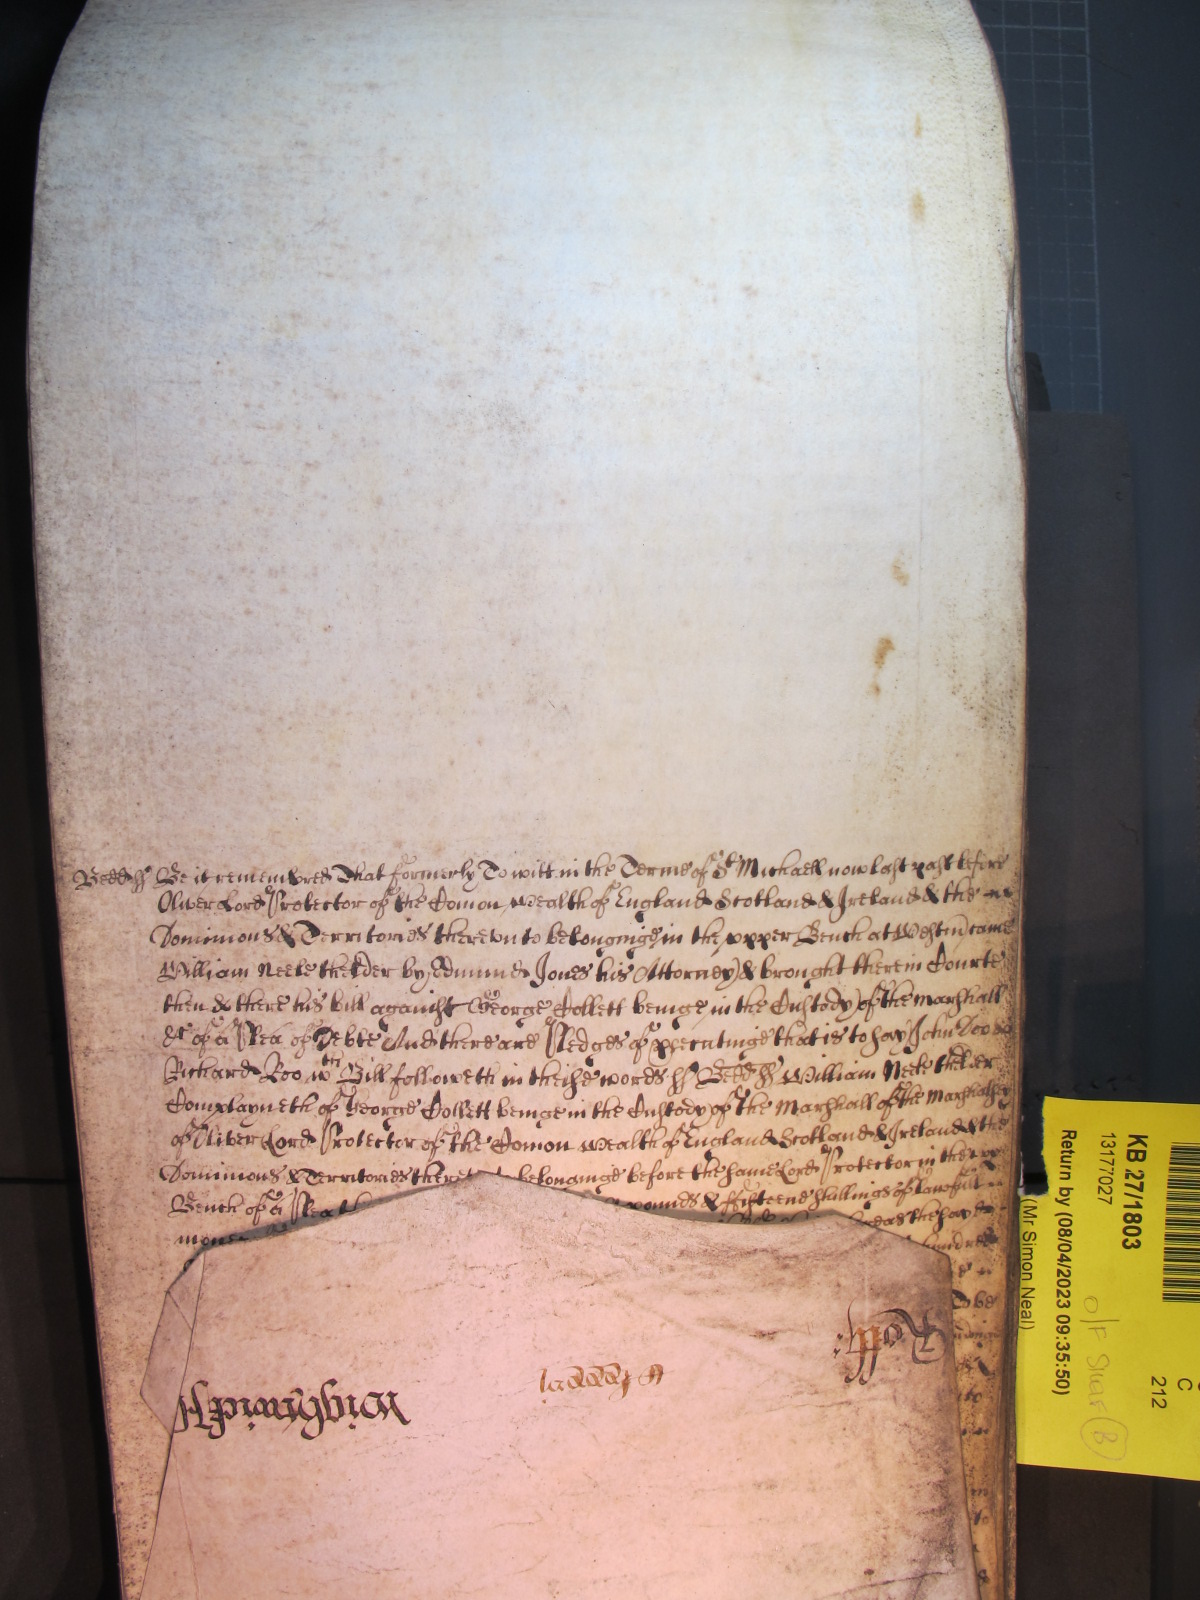 Bedd ss Be it remembred That formerly To witt in the Terme of St Michaell now last past before
Oliver Lord Protector of the Comon wealth of England Scotland & Ireland & the
Dominions & Territories thereunto belonginge in the upper Bench at Westm came
William Neele the elder by Edmund Jones his Attorney & brought there in Courte
then & there his bill against George Collett beinge in the Custody of the Marshall
&c of a Plea of Debte And there are Pledges of prosecutinge that is to say John Doo &
Richard Roo wch Bill followeth in theise words ss Bedd ss William Neele the elder
Complayneth of George Collett beinge in the Custody of the Marshall of the Marshalsey
of Oliver Lord Protector of the Comon wealth of England Scotland & Ireland & the
Dominions & Territories belonginge before the same Lord Protector in the upper
Bench of a Plea pounds & fifteene shillings of lawfull
money
hundred
Rolff
Wightwicke
KB 27/1803
13177027
Return by (08/04/2023 09:35:50)
(Mr Simon Neal)
C
212
O/F Shelf B